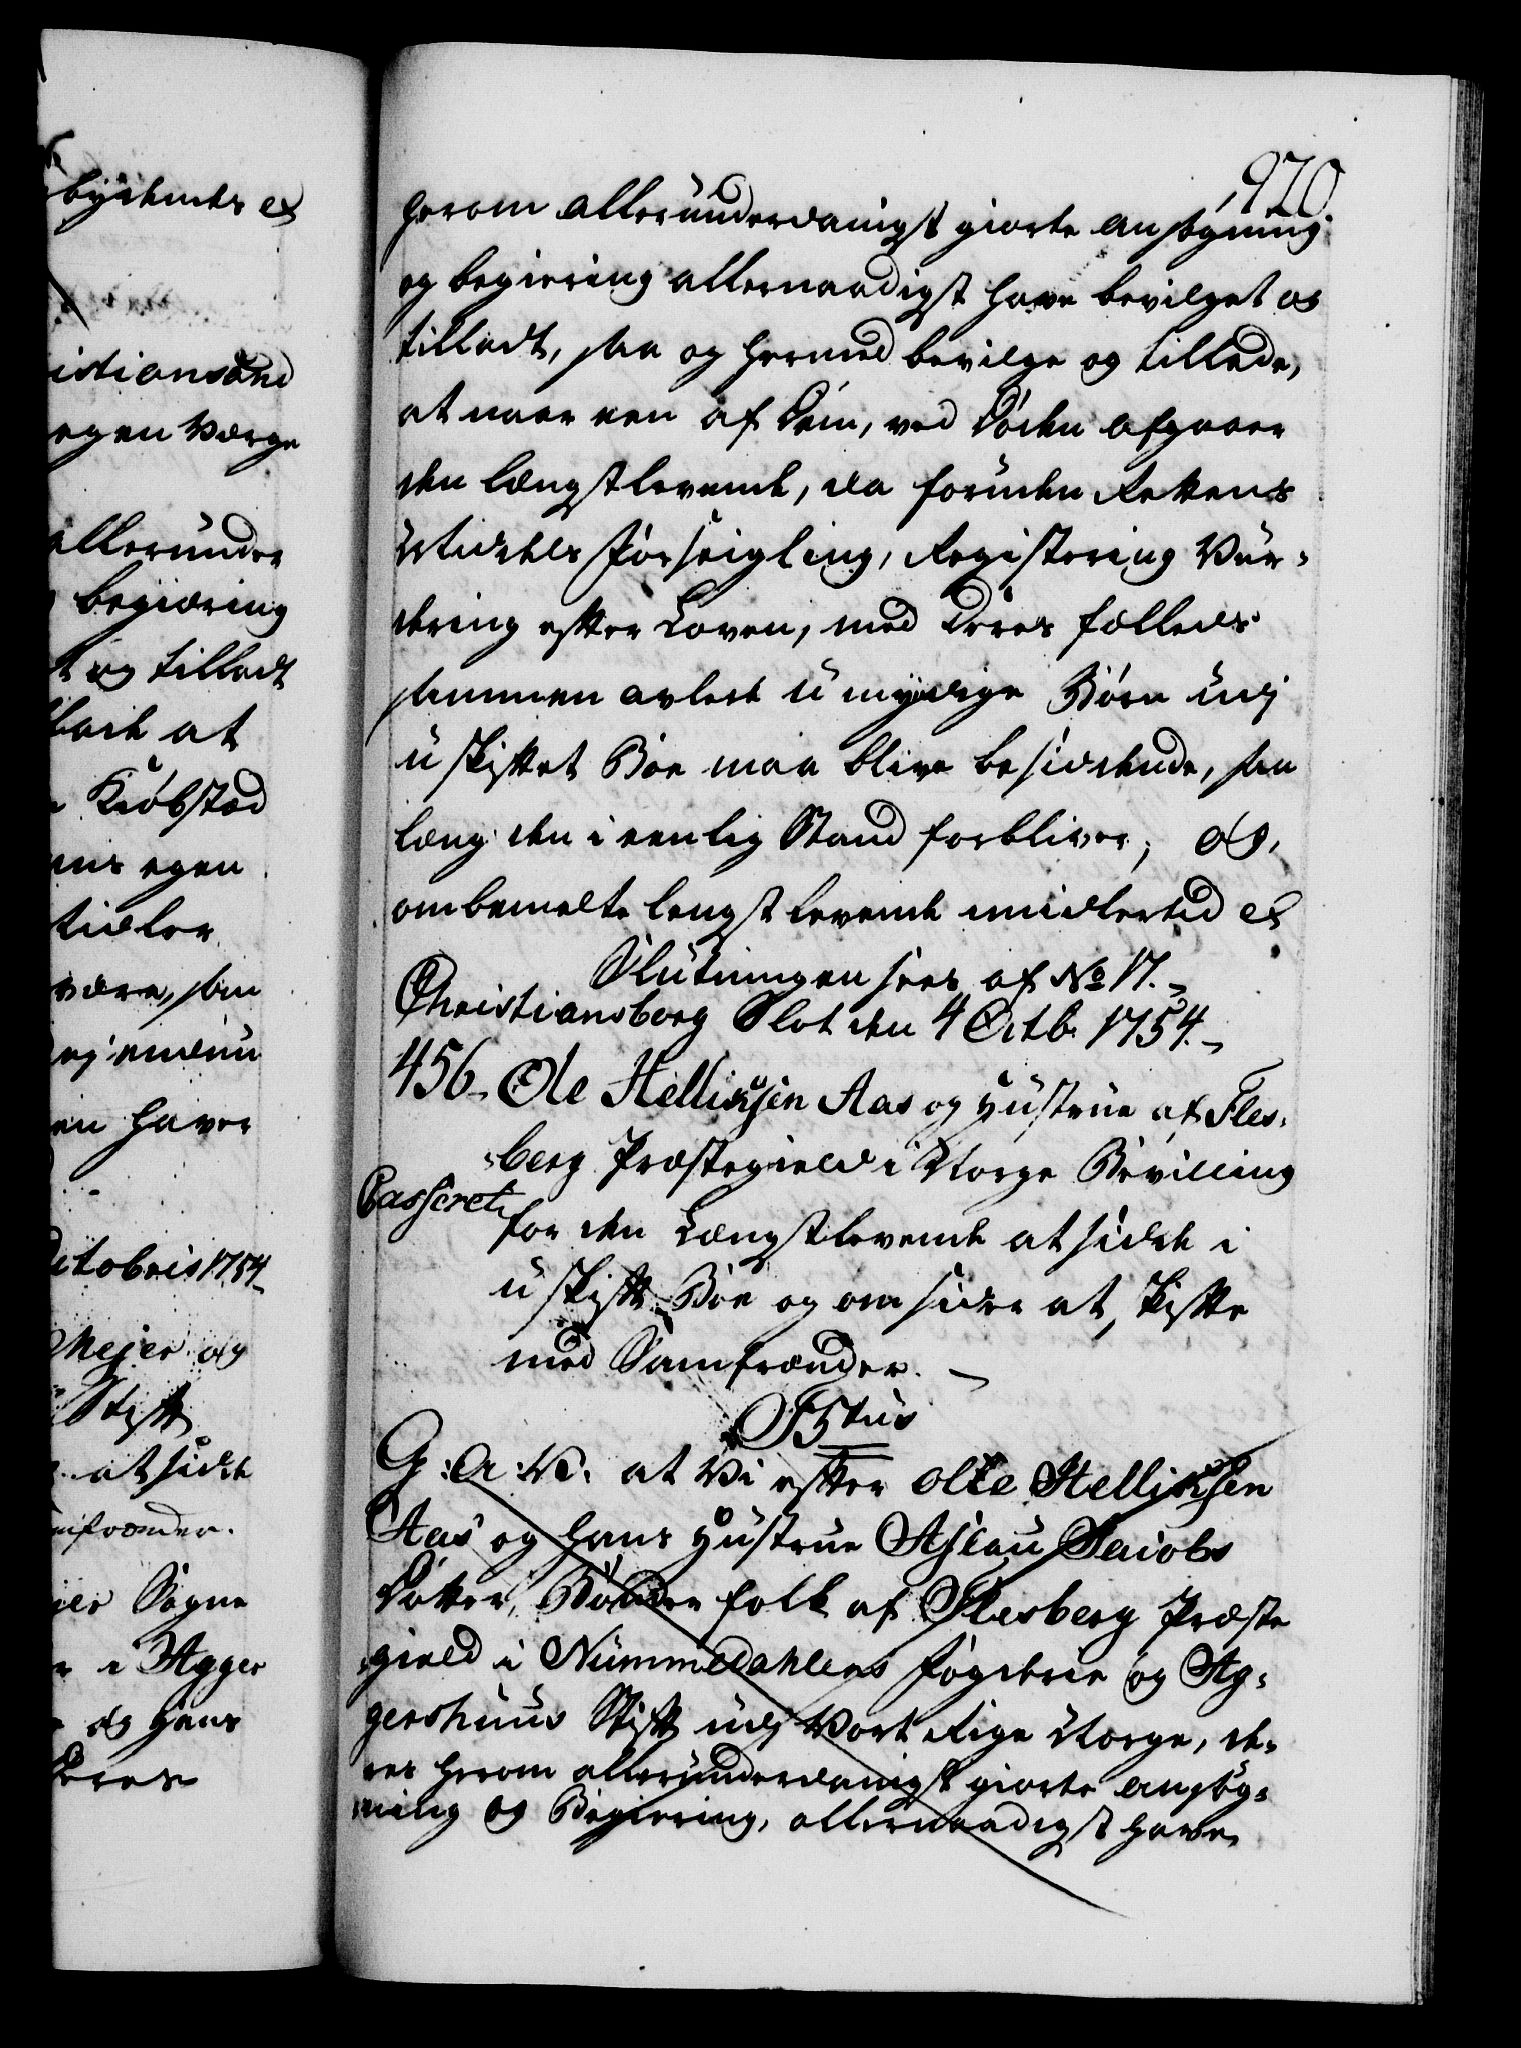 bÿdende et
istiansand
egen Værge
allerunder
begiæring
t og tilladt
at
Kiøbstæd
ens egen
være, som
en haver
Octobris 1754
Meyer og
Stift
at sidde
mfrænder.
Sogne
i Agger
og hans
Deres
920.
herom allerunderdanigst giorte ansøgning
og begiering allernaadigst have bevilget og
tilladt, saa og hermed bevilge og tillade,
at naar een af dem, ved Døden afgaaer
den længstlevende, da foruden Rettens
Middels Forseigling, Registering Vur-
dering efter Loven, med deres fælleds
sammen avlede umyndige Børn udj
uskiftet Boe maa blive besiddende, saa
læng den i eenlig Stand forbliver, Og,
ombemelte lengst levende imidlertid et
Slutningen sees af No 17.
Christiansborg Slot den 4 Octb. 1754.
456. Ole Hellixsen Aas og Hustrue af Fles-
berg Præstegield i Norge Bevilling
Casseret
for den Længstlevende at sidde i
uskift Boe og om siden at, skifte
med Samfrænder.
G: A: V: at Vi efter Olle Hellixsen
Aas og hans Hustrue Aslau Jacobs
Datter, Bønder folk af Flesberg Præste
gield i Nummedahlens Fogderie og Ag-
gershuus Stift udj Vort Rige Norge, de-
res herom allerunderdanigst giorte ansøg-
ning og Begiering, allernaadigst have